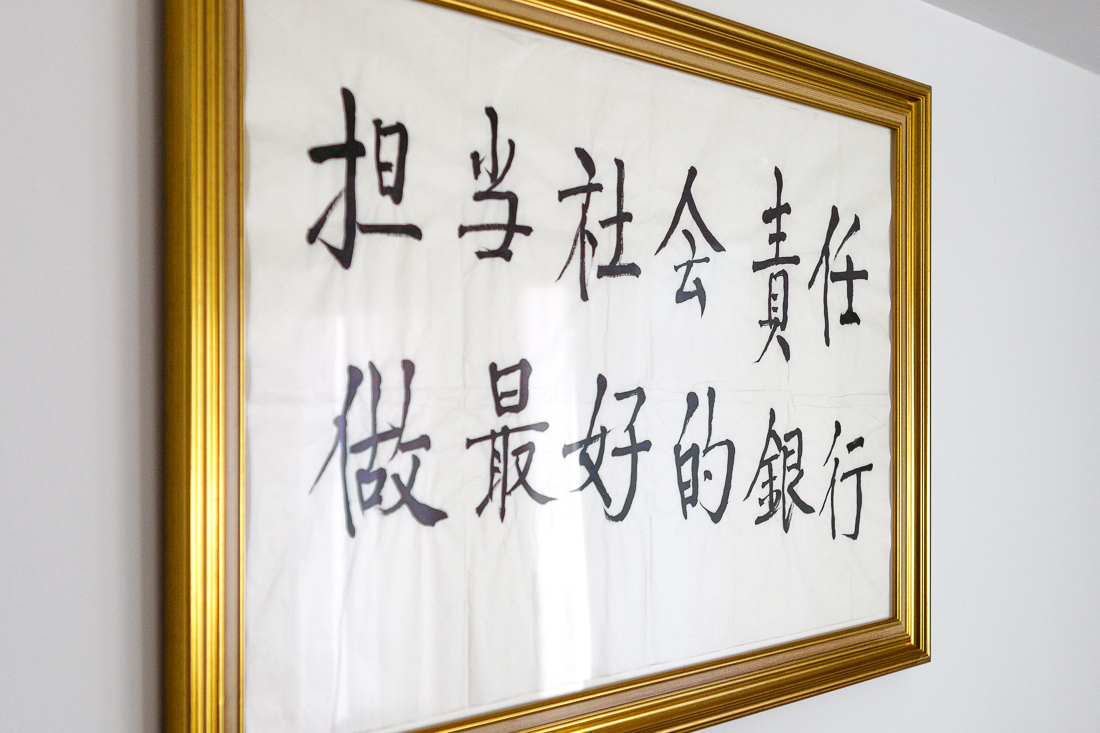 担当社会責任
做最好的銀行